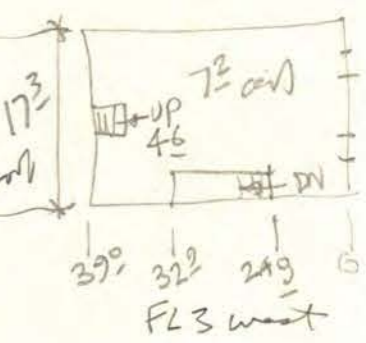 17³
7² ceil
UP
4⁶
DN
39⁰ 24⁹ 0
FL 3 west